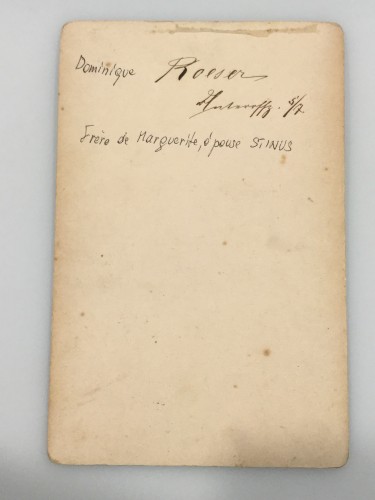 Dominique Roeser
Frère de Marguerite, épouse STINUS